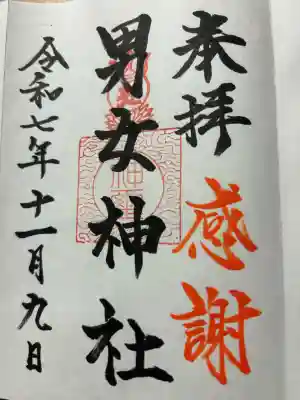 奉拝
感謝
男女神社
令和七年十一月九日